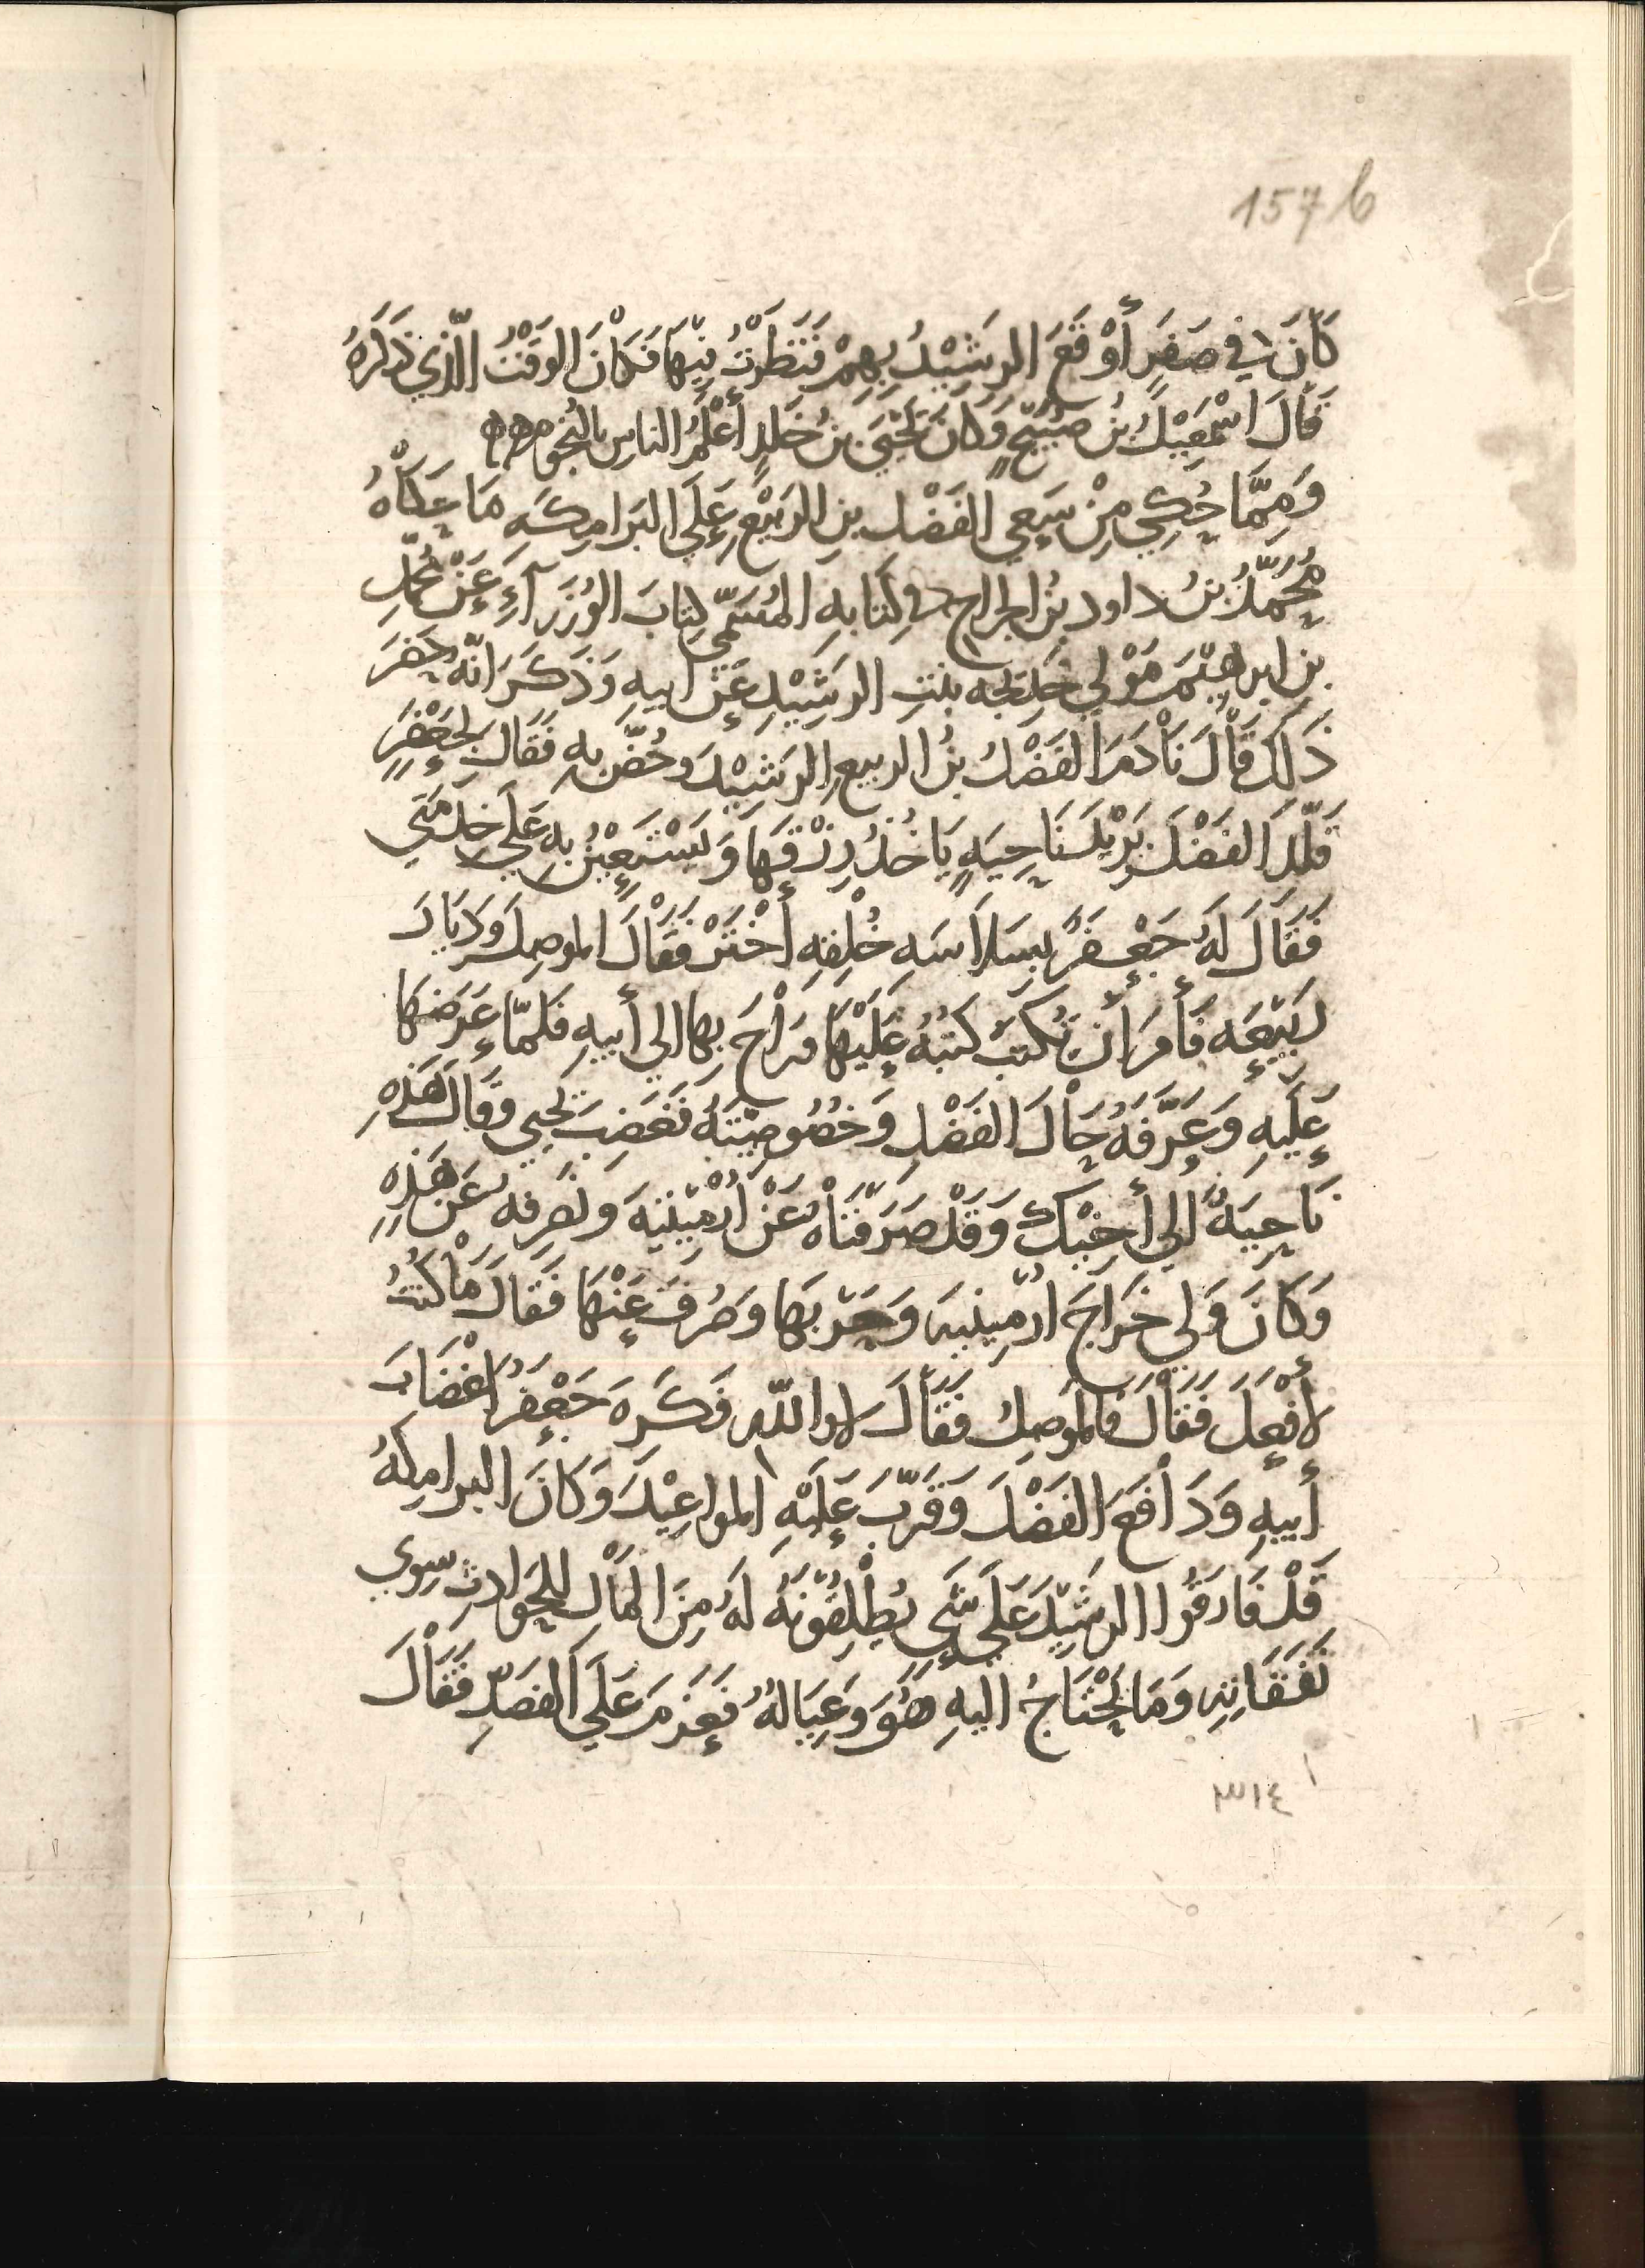 157 b
كَانَ في صَفَرٍ أَوْقَعَ الرَشِيْدُ بِهِمْ فَنَظَرْتُ فِيْهَا فَكَانَ الوَقْتُ الَّذِي ذَكَرَهُ
قَالَ اسْمَعِيْلُ بْنُ صُبَيْحٍ وَكَانَ يَحْيَى بنُ خَلدٍ أَعْلَمُ الناسِ بالنُجُوم
وَمِمَّا حُكِيَ مِنْ سَعِي الفَضْل بنِ الرَبِيْعِ عَلَى البَرَامِكَه مَا حَكَاهُ
مُحَمَّدُ بنُ داود بنُ الجراح في كِتَابهِ المُسَمّي كِتابَ الوُزَرَآءِ عَنْ مُحَمَّدِ
بن ابرهيْمَ مَوْلي خَدِيجه بنتِ الرَشِيْدِ عَنْ ابيهِ وَذَكَرَ انّهُ حَضَرَ
ذَلكَ قَالَ نَادَمَ الفَضْلُ بنُ الربيع الرَشِيْدَ وخُصَّ بهِ فَقَالَ لِجَعْفَرٍ
قَلّد الفَضْلَ بَرْيِكَ نَاحِيَهٍ يَاخُذُ رِزْقَهَا وَيَسْتَعِيْنُ بِهِ عَلَي خِدْمَتي
فَقَالَ لَهُ جَعْفَرٌ بِسَلاَسَهِ خُلقِه أخْتَرْ فَقَالَ الموصِلَ وَدَيَارَ
رَبيْعَه فَأَمَرَ أن تُكتَبَ كتبُهُ عَلَيْهَا وَرَاْحَ بِهَا الي أَبيهِ فَلَمَّا عَرَضَهَا
عَلَيهِ وَعَرَّفَهُ حَالَ الفَضْلِ وَخصُوصِيّتَهُ فَغَضِبَ يَحيي وقَالَ هَذِهِ
نَاحِيَهُ الي أَخِيْكَ وَقَدْ صَرَفْنَاهُ عَنْ أرْمِيْنِيَهَ ونَصرِفهُ عَنْ هَذِهِ
وَكَانَ وَلي خَرَاجَ ارْمِيْنيَهَ وَحَرْبهَا وَصُرِفَ عَنْهَا فَقَالَ مَا كُنْتُ
لأَفْعَلَ فَقَالَ فَالموصِلُ فَقَالَ لا واللهِ فَكَرِهَ جَعْفَرُ اغْضَابَ
أَبيهِ وَدَاْفَعَ الفَضْلَ وَقَرّبَ عَلَيْهِ المواعِيْدَ وَكَانَ البرامِكهُ
قَدْ فَارَقُوا الرشِيْدَ عَلَي شَيءٍ يُطْلِقُونَهُ لَهُ مِنَ المَاْلِ لِلحَوَادِثِ سِوي
نَفَقَاتِهِ وَمَا يَحْتَاجُ اليهِ هُوَ وَعِيَالهُ فَعَزَمَ عَلَى الفَصَدِّ فَقَاْلَ
٣١٤